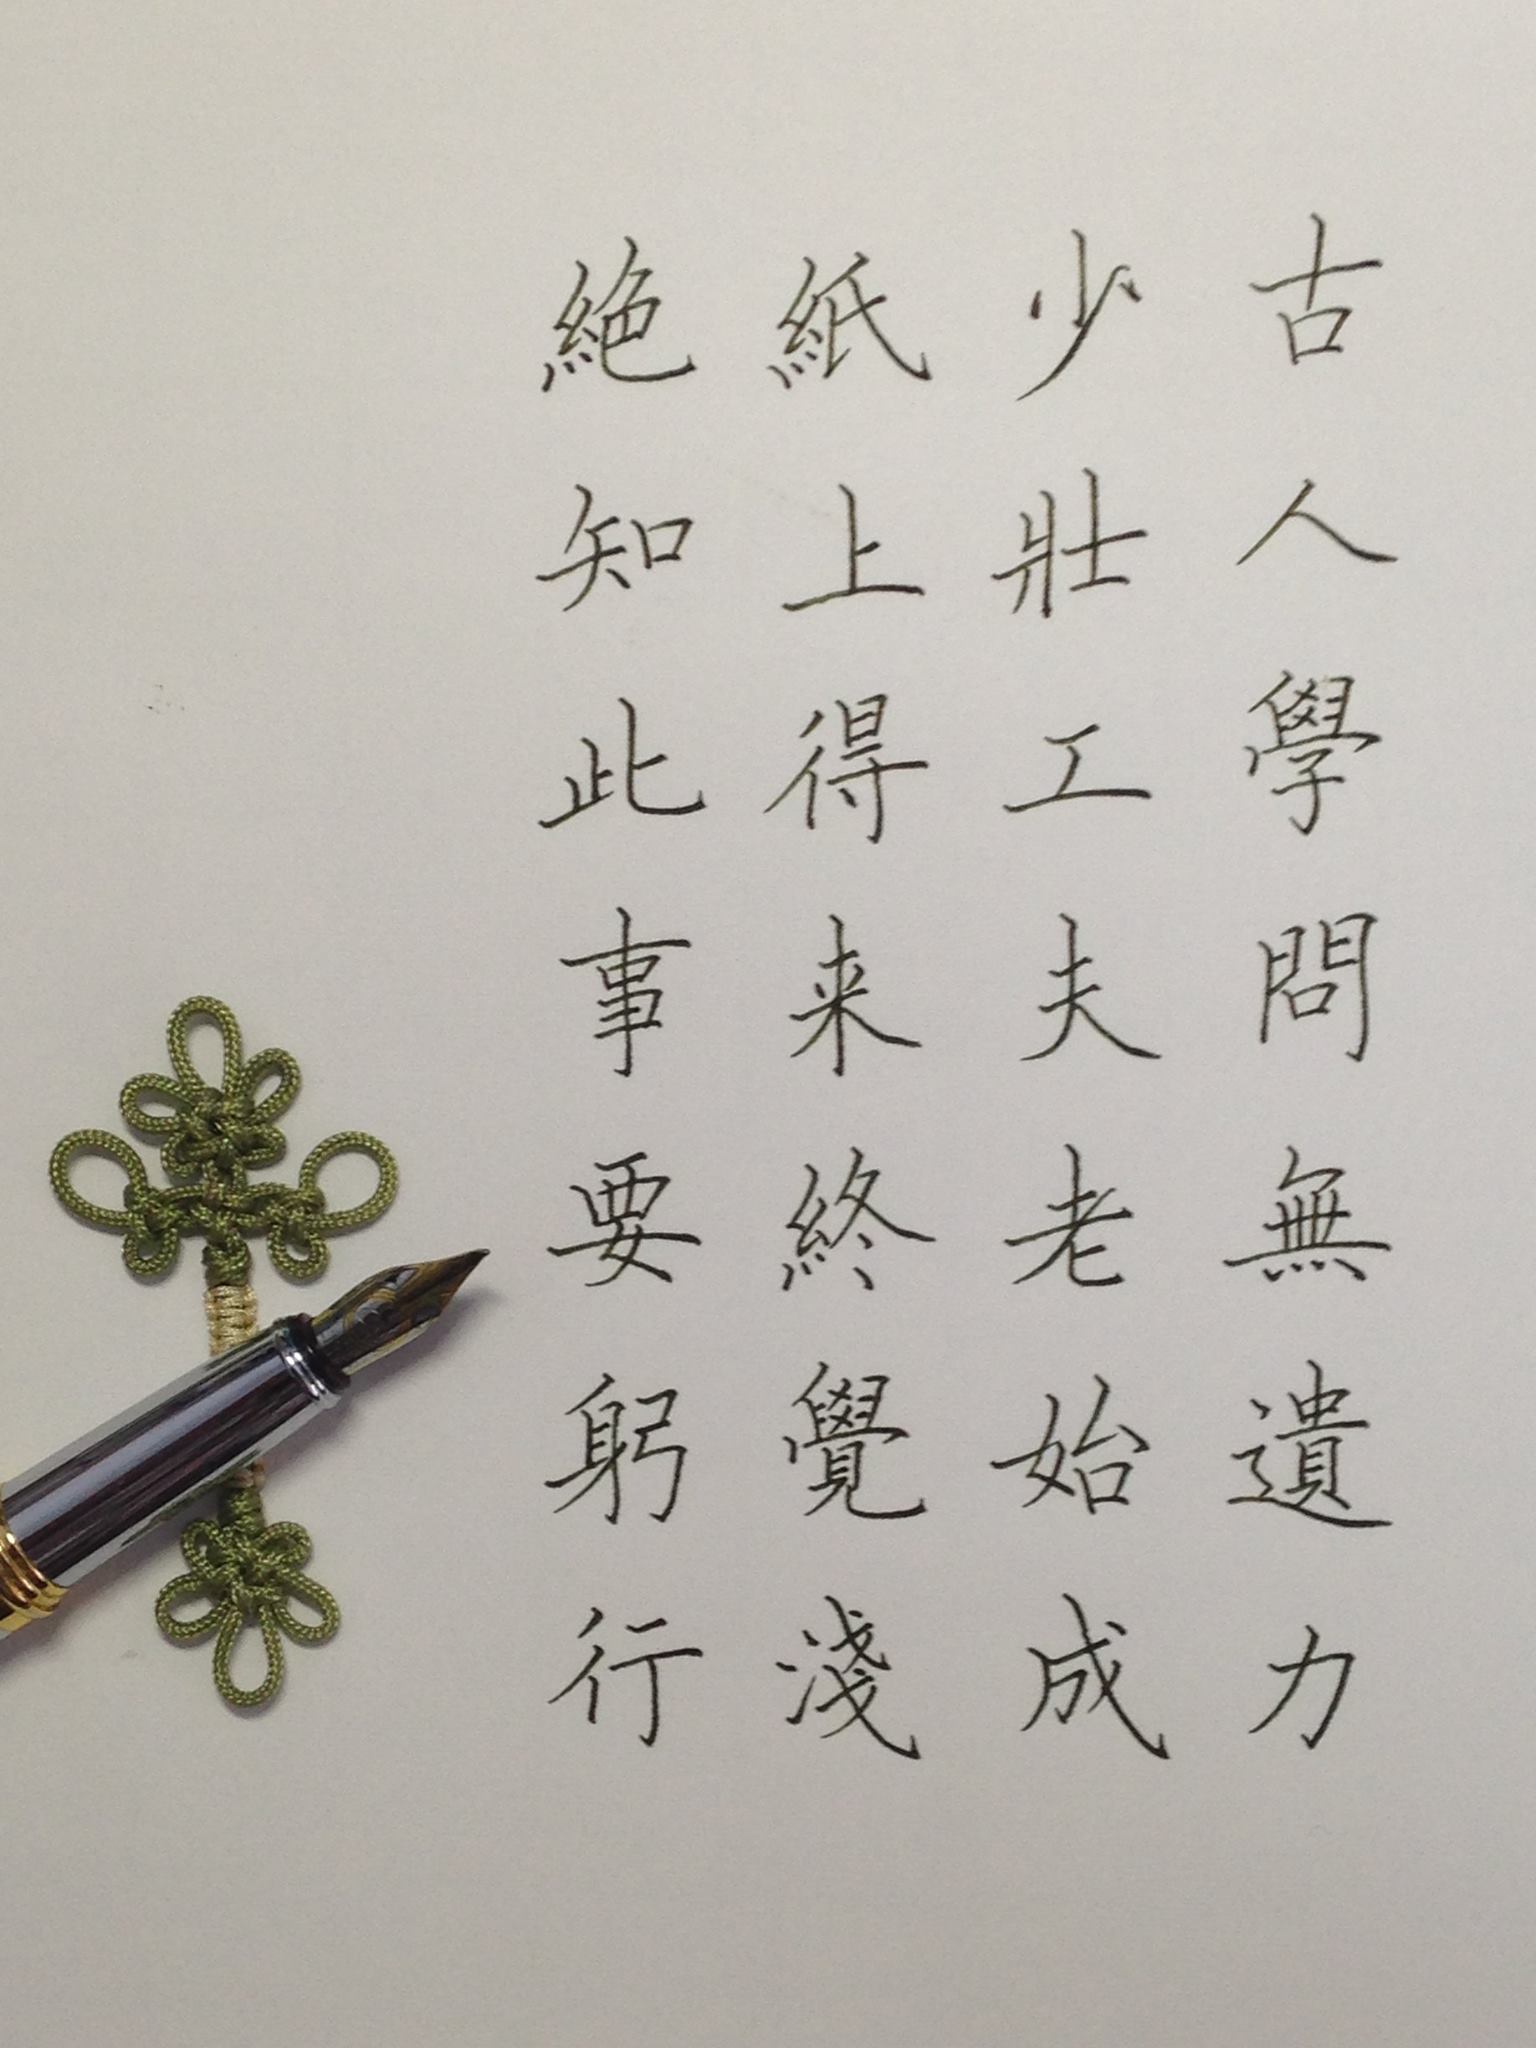 古人學問無遺力
少壯工夫老始成
紙上得来終覺淺
絕知此事要躬行